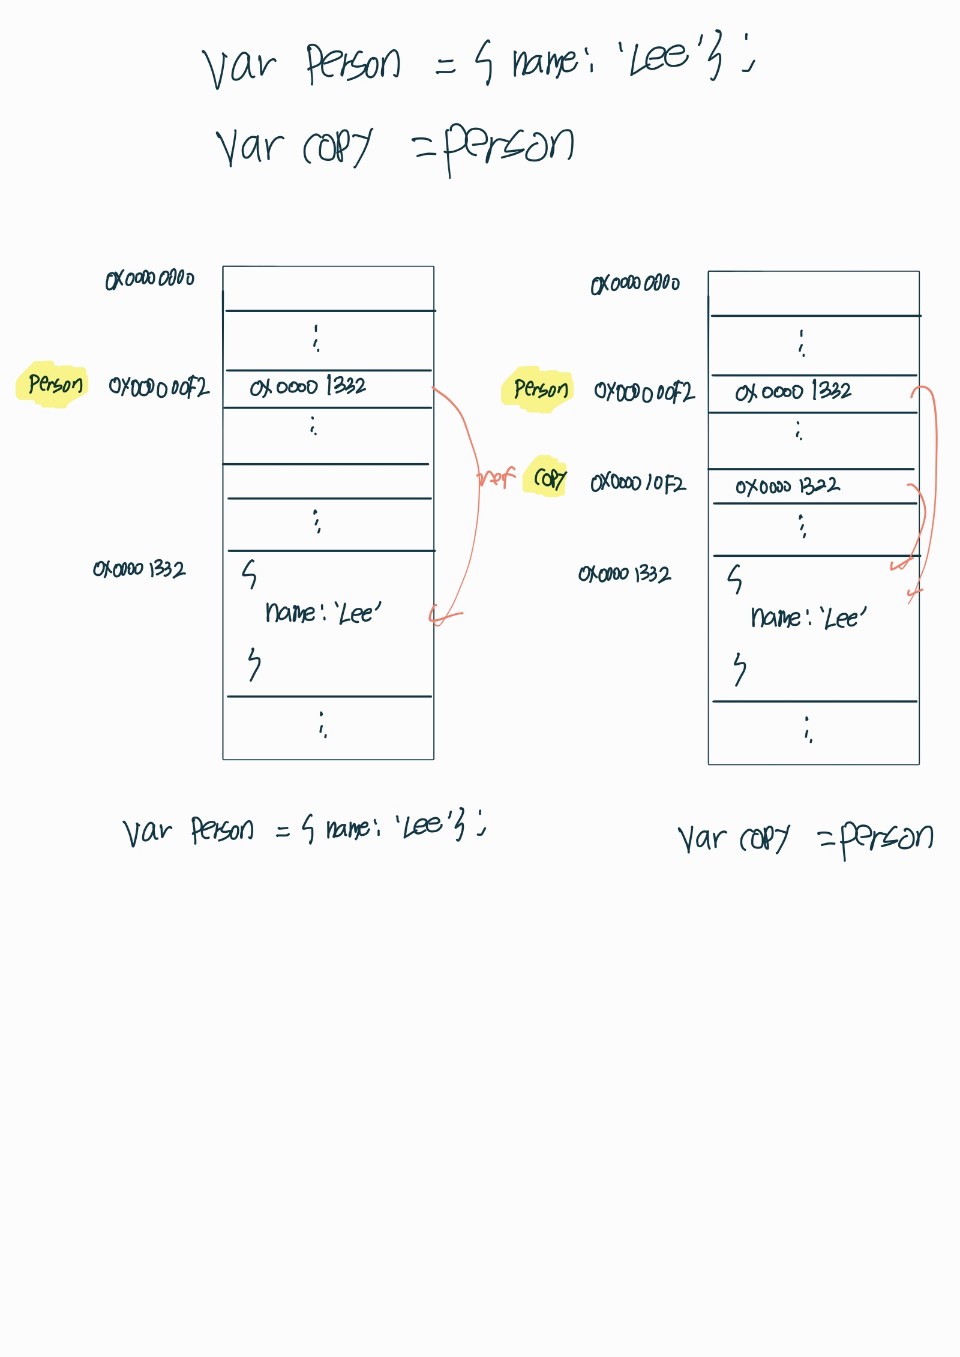 var person = { name: 'Lee' };
var copy = person
0x0000 0000
person 0x0000 00F2 0x0000 1332
ref
0x0000 1332 {
name: 'Lee'
}
var person = { name: 'Lee' };
0x0000 0000
person 0x0000 00F2 0x0000 1332
copy 0x0000 10F2 0x0000 1322
0x0000 1332 {
name: 'Lee'
}
var copy = person